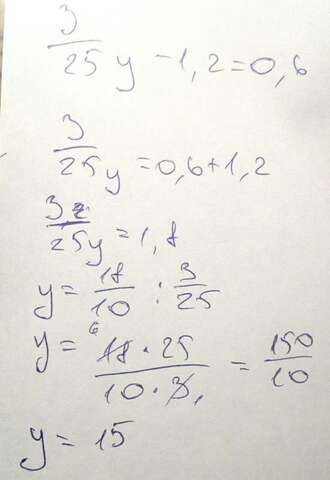 3/25 y - 1,2 = 0,6
3/25 y = 0,6 + 1,2
3/25 y = 1,8
y = 18/10 : 3/25
y = 6 18 · 25 / 10 · 3 1 = 150/10
y = 15